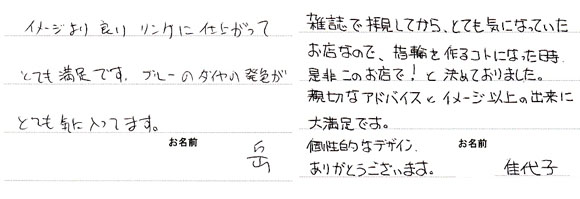 イメージより良いリングに仕上がって
とても満足です。ブルーのダイヤの発色が
とても気に入ってます。
お名前
岳
雑誌で拝見してから、とても気になっていた
お店なので、指輪を作るコトになった時、
是非このお店で！と決めておりました。
親切なアドバイスとイメージ以上の出来に
大満足です。
個性的なデザイン、
ありがとうございます。
お名前
佳代子